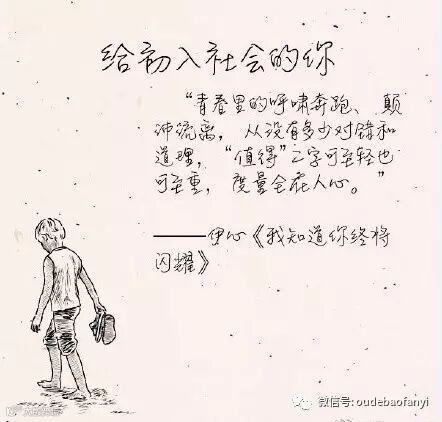 给初入社会的你
“青春里的呼啸奔跑、颠
沛流离，从没有多少对错和
道理，“值得”二字可至轻也
可至重，度量全在人心。”
——伊心《我知道你终将
闪耀》
微信号: oudebaofanyi